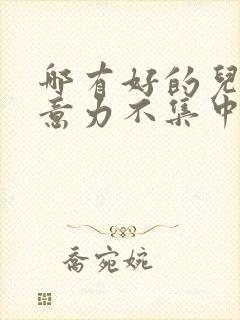 那有好的兒
意力不集中
喬宛婉